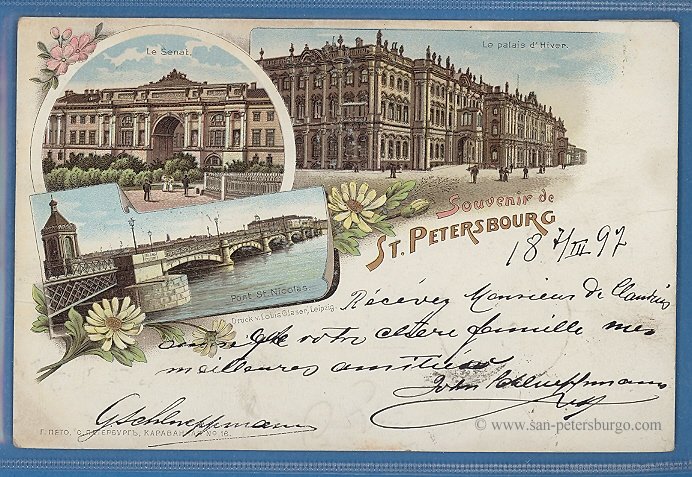 Le Senat.
Le palais d'Hiver.
Souvenir de
ST. PETERSBOURG
18 7/III 97
Pont St. Nicolas.
Druck v. Louis Glaser, Leipzig.
Récévez Monsieur de
ainsi que votre chère famille mes
meilleures amitiés
John Schluepmann
GSchluepmann
© www.san-petersburgo.com
Г. ПЕТО. С. ПЕТЕРБУРГЪ, КАРАВАННАЯ № 16.